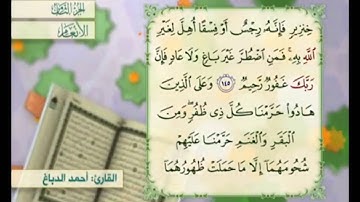 الجزء الثامن
الأنعام
خِنزِيرٍ فَإِنَّهُۥ رِجْسٌ أَوْ فِسْقًا أُهِلَّ لِغَيْرِ
ٱللَّهِ بِهِۦ ۚ فَمَنِ ٱضْطُرَّ غَيْرَ بَاغٍ وَلَا عَادٍ فَإِنَّ
رَبَّكَ غَفُورٌ رَّحِيمٌ ١٤٥ وَعَلَى ٱلَّذِينَ
هَادُوا۟ حَرَّمْنَا كُلَّ ذِى ظُفُرٍ ۖ وَمِنَ
ٱلْبَقَرِ وَٱلْغَنَمِ حَرَّمْنَا عَلَيْهِمْ
شُحُومَهُمَآ إِلَّا مَا حَمَلَتْ ظُهُورُهُمَآ
القارئ: أحمد الدباغ